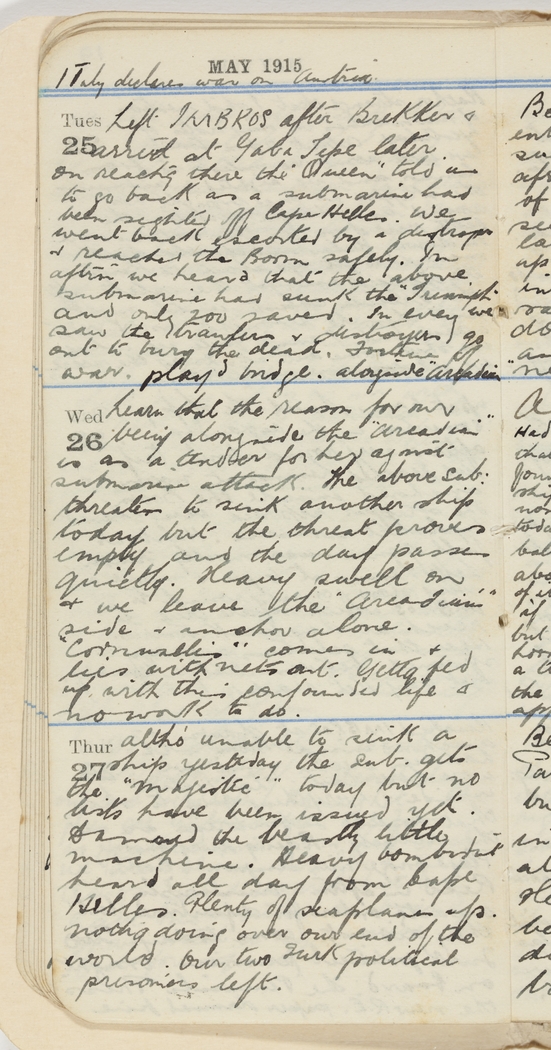 MAY 1915
ITaly declares war on Austria.
Tues Left IMBROS after Brekker &
25 arrived at Gaba Tepe later
on reachg there the "Queen" told us
to go back as a submarine had
been sighted off Cape Helles. We
went back escorted by a
& reached the Boom safely. In
aftrn we heard that the above
submarine had sunk the "Triumph"
and only 200 saved. In eveng we
saw the trawlers & destroyers go
out to bury the dead. Fortune of
war. played bridge. alongside "Arcadian"
Wed hear that the reason for our
26 being alongside the "Arcadian"
is as a tender for her against
submarine attack. The above sub:
threatens to sink another ship
today but the threat proves
empty and the day passes
quietly. Heavy swell on
& we leave the "Arcadian's"
side & anchor alone.
"Cornwallis" comes in &
lies with nets out. Gettg fed
up with this confounded life &
no work to do.
Thur altho' unable to sink a
27 ship yesterday the sub. gets
the "Majestic" today but no
lists have been issued yet.
Damned the beastly little
machine. Heavy bombardt
heard all day from Cape
Helles. Plenty of seaplanes up.
nothg doing over our end of the
world. Our two Turk political
prisoners left.